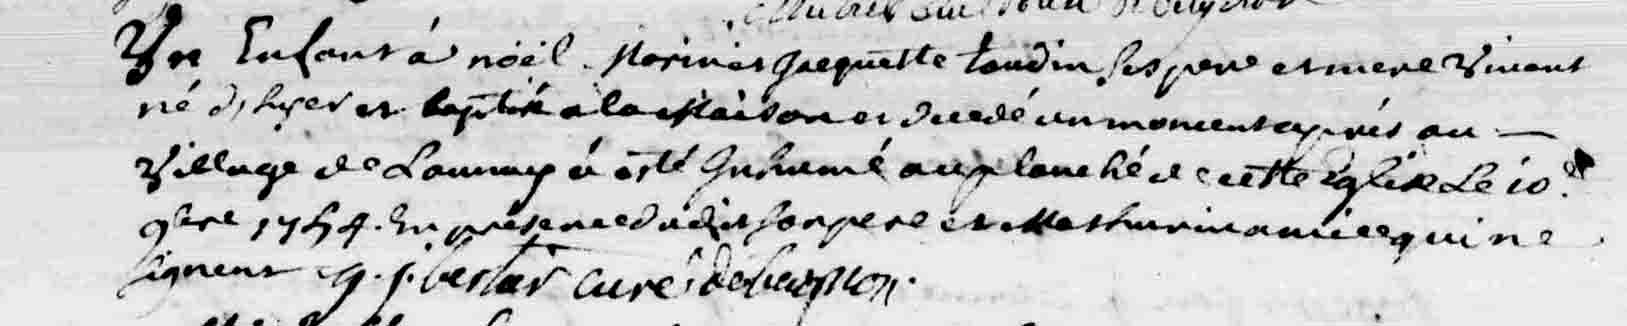 Un Enfant à noël Morin et Jacquette taudin ses pere et mere Vivant
né d'hyer et baptisé a la Maison et decedé un moment après au
Village de Launay à esté Inhumé au planché de cette Eglise Le 10.e
9bre 1754. En presence dudit son pere et Mathurin amice qui ne
signent curé de